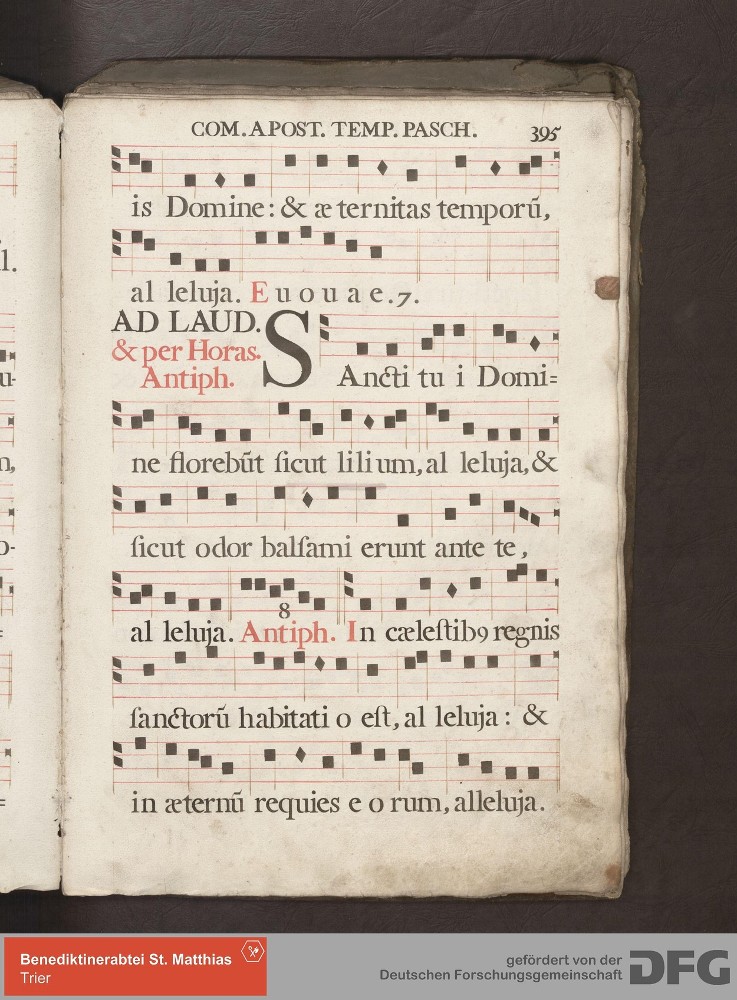 COM. APOST. TEMP. PASCH. 395
is Domine: & æ ternitas temporū,
al leluja. E u o u a e. 7.
AD LAUD.
& per Horas.
Antiph.
SAncti tu i Domi=
ne florebūt ſicut lilium, al leluja, &
ſicut odor balſami erunt ante te,
8
al leluja. Antiph. In cæleſtib9 regnis
ſanctorū habitati o eſt, al leluja: &
in æternū requies e o rum, alleluja.
Benediktinerabtei St. Matthias
Trier
gefördert von der
Deutschen Forschungsgemeinschaft
DFG